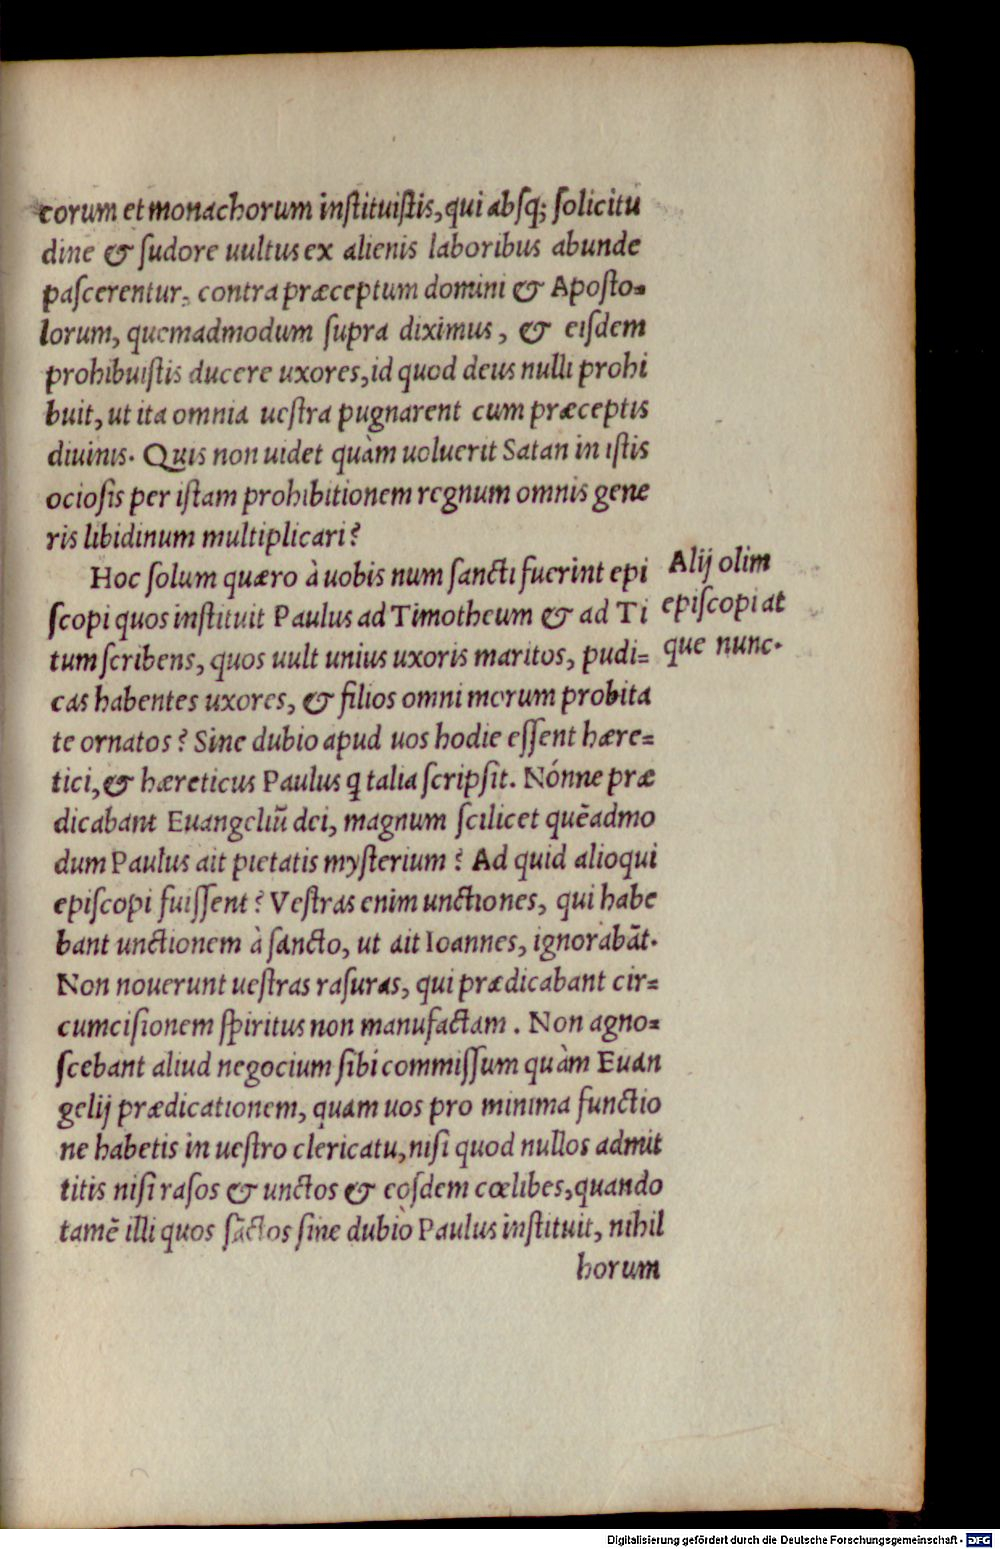 corum et monachorum inſtituiſtis, qui abſq; ſolicitu
dine & ſudore uultus ex alienis laboribus abunde
paſcerentur, contra præceptum domini & Apoſto-
lorum, quemadmodum ſupra diximus, & eiſdem
prohibuiſtis ducere uxores, id quod deus nulli prohi
buit, ut ita omnia ueſtra pugnarent cum præceptis
diuinis. Quis non uidet quàm uoluerit Satan in iſtis
ocioſis per iſtam prohibitionem regnum omnis gene
ris libidinum multiplicari?
Hoc ſolum quæro à uobis num ſancti fuerint epi
ſcopi quos inſtituit Paulus ad Timotheum & ad Ti
tum ſcribens, quos uult unius uxoris maritos, pudi=
cas habentes uxores, & filios omni morum probita
te ornatos? Sine dubio apud uos hodie eſſent hære=
tici, & hæreticus Paulus ꝗ talia ſcripſit. Nónne præ
dicabant Euangeliū dei, magnum ſcilicet quēadmo
dum Paulus ait pietatis myſterium? Ad quid alioqui
epiſcopi fuiſſent? Veſtras enim unctiones, qui habe
bant unctionem à ſancto, ut ait Ioannes, ignorabāt.
Non nouerunt ueſtras raſuras, qui prædicabant cir=
cumciſionem ſpiritus non manufactam. Non agno=
ſcebant aliud negocium ſibi commiſſum quàm Euan
gelij prædicationem, quam uos pro minima functio
ne habetis in ueſtro clericatu, niſi quod nullos admit
titis niſi raſos & unctos & eoſdem cœlibes, quando
tamē illi quos ſāctos ſine dubiò Paulus inſtituit, nihil
horum
Alij olim
epiſcopi at
que nunc.
Digitalisierung gefördert durch die Deutsche Forschungsgemeinschaft - DFG